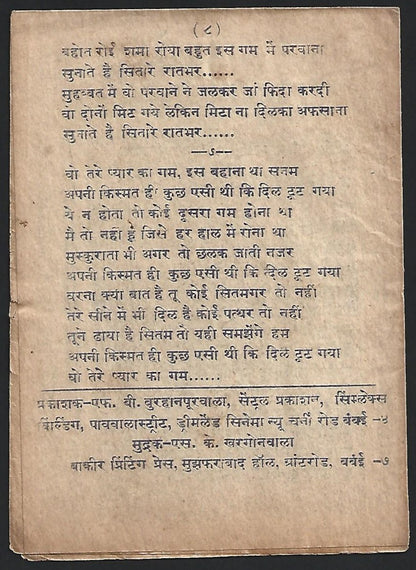 (८)
बहोत रोई शमा रोया बहुत इस गम में परवाना
सुनाते है सितारे रातभर......
मुहब्बत में वो परवाने ने जलकर जां फिदा करदी
वो दोनों मिट गये लेकिन मिटा ना दिलका अफसाना
सुनाते है सितारे रातभर......
—ऽ—
वो तेरे प्यार का गम, इस बहाना था सनम
अपनी किस्मत ही कुछ एसी थी कि दिल टूट गया
ये न होता तो कोई दूसरा गम होना था
मै तो नही हूं जिसे हर हाल में रोना था
मुस्कुराता भी अगर तो छलक जाती नजर
अपनी किस्मत ही कुछ एसी थी कि दिल टूट गया
वरना क्या बात है तू कोई सितमगर तो नहीं
तेरे सीने में भी दिल है कोई पत्थर तो नहीं
तूने ढाया है सितम तो यही समझेंगे हम
अपनी किस्मत ही कुछ एसी थी कि दिल टूट गया
वो तेरे प्यार का गम......
प्रकाशक-एफ. बी. बुरहानपूरवाला, सेंट्रल प्रकाशन, सिंप्लेक्स
बिल्डिंग, पाववालास्ट्रीट, ड्रीमलेंड सिनेमा न्यू चर्नी रोड बंबई -४
मुद्रक-एस. के. खरगोनवाला
बाकीर प्रिंटिंग प्रेस, मुझफराबाद हॉल, ग्रांटरोड, बंबई -७